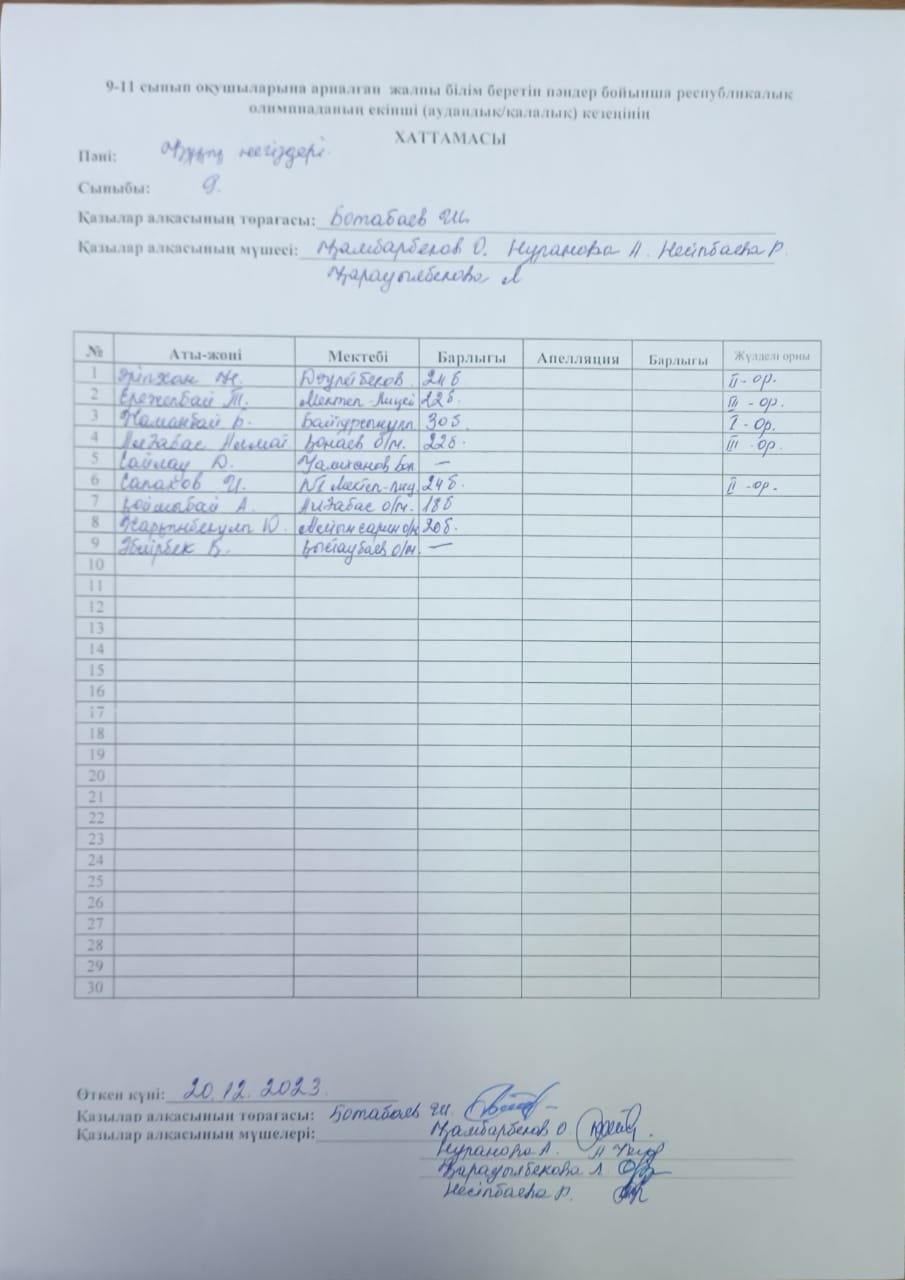 9-11 сынып оқушыларына арналған жалпы білім беретін пәндер бойынша республикалық
олимпиаданың екінші (аудандық/қалалық) кезеңінің
ХАТТАМАСЫ
Пәні: Құқық негіздері.
Сыныбы: 9.
Қазылар алқасының төрағасы: Ботабаев
Қазылар алқасының мүшесі: Қамбарбеков О. Нуранова А. Несіпбаева Р.
Қарауылбекова Л
№ Аты-жөні Мектебі Барлығы Апелляция Барлығы Жүлделі орны
1 Әріпхан Ж. Дәулетбеков 24б II- ор.
2 Ережепбай Т. Мектеп-Лицей 22б. III - ор.
3 Жаманбай Б. Байтұрсынұлы 30б I - Ор.
4 Алғабас Алмат Қонаев о/м. 22б III -ор.
5 Сайлау —
6 Сапахов И. №1 Мектеп-лиц. 24б. II -ор.
7 Қоймыбай А. Алғабас о/м. 18б
8 20б.
9 Қыстаубаев о/м. —
10
11
12
13
14
15
16
17
18
19
20
21
22
23
24
25
26
27
28
29
30
Өткен күні: 20.12.2023.
Қазылар алқасының төрағасы: Ботабаев
Қазылар алқасының мүшелері: Қамбарбеков О.
Нуранова А.
Қарауылбекова Л
Несіпбаева Р.